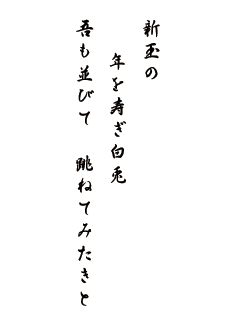 新玉の
年を寿ぎ白兎
吾も並びて　跳ねてみたきと